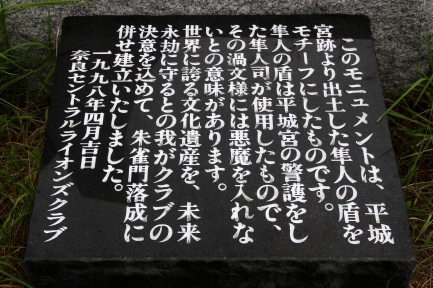 このモニュメントは、平城
宮跡より出土した隼人の盾を
モチーフにしたものです。
隼人の盾は平城宮の警護をし
た隼人司が使用したもので、
その渦文様には悪魔を入れな
いとの意味があります。
世界に誇る文化遺産を、未来
永劫に守るとの我がクラブの
決意を込めて、朱雀門落成に
併せ建立いたしました。
一九九八年四月吉日
奈良セントラルライオンズクラブ